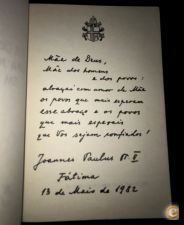 Mãe de Deus,
Mãe dos homens
e dos povos:
abraçai com amor de Mãe
os povos que mais esperam
esse abraço e os povos
que mais esperais
que Vos sejam confiados!
Joannes Paulus PP. II
Fátima
13 de Maio de 1982